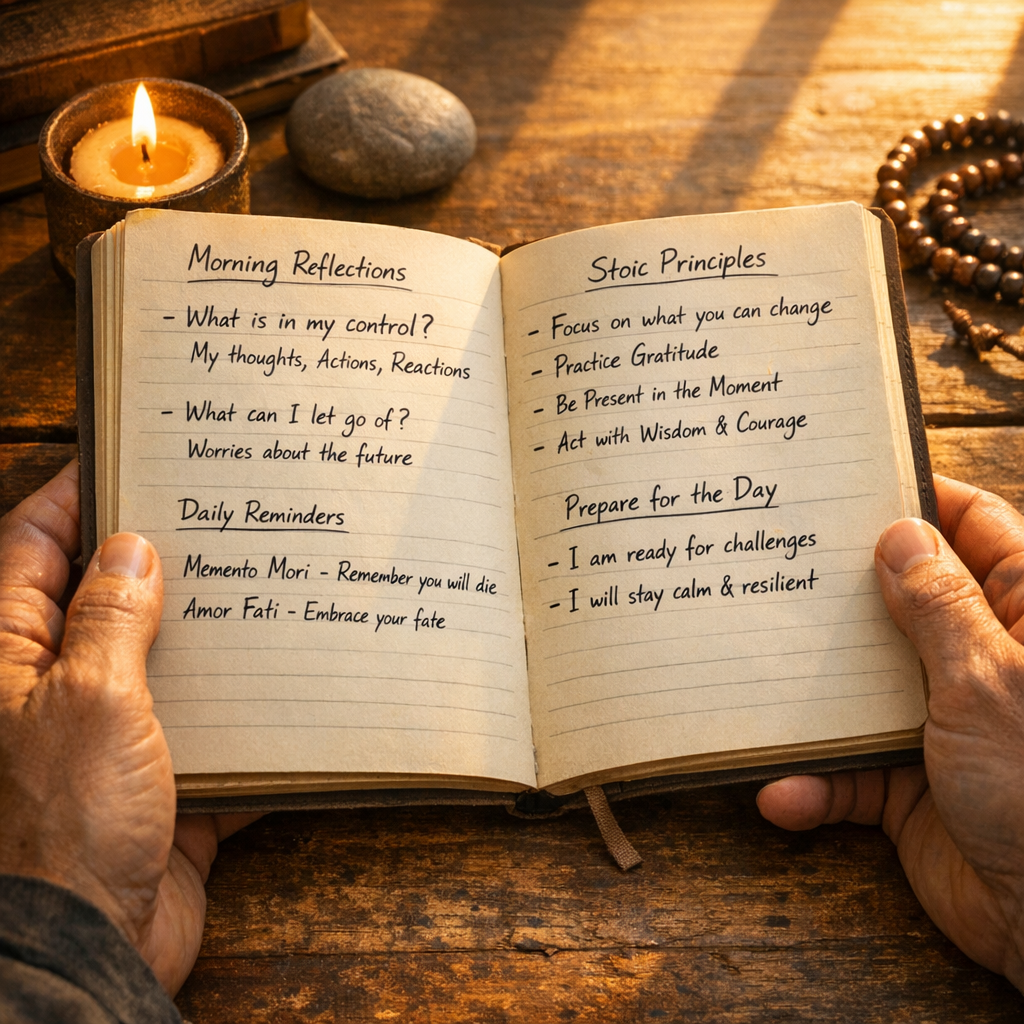 Morning Reflections
- What is in my control?
My thoughts, Actions, Reactions
- What can I let go of?
Worries about the future
Daily Reminders
Memento Mori - Remember you will die
Amor Fati - Embrace your fate
Stoic Principles
- Focus on what you can change
- Practice Gratitude
- Be Present in the Moment
- Act with Wisdom & Courage
Prepare for the Day
- I am ready for challenges
- I will stay calm & resilient